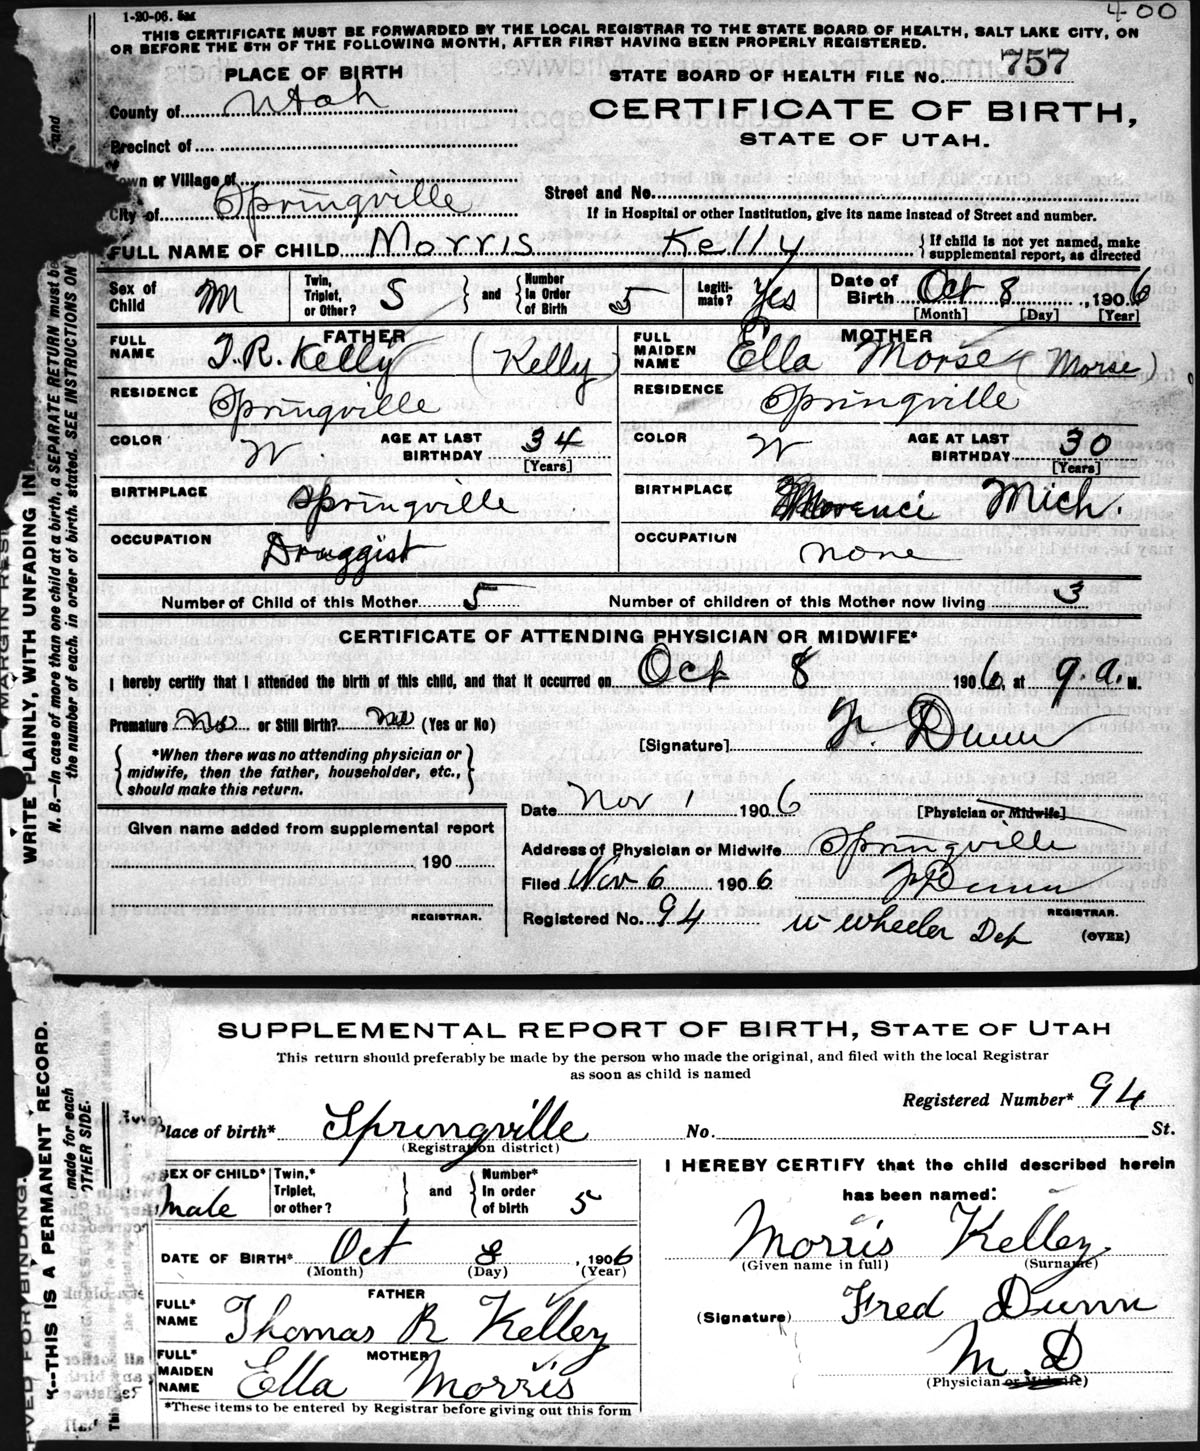 1-20-06. 5m
400
THIS CERTIFICATE MUST BE FORWARDED BY THE LOCAL REGISTRAR TO THE STATE BOARD OF HEALTH, SALT LAKE CITY, ON
OR BEFORE THE 5TH OF THE FOLLOWING MONTH, AFTER FIRST HAVING BEEN PROPERLY REGISTERED.
PLACE OF BIRTH
STATE BOARD OF HEALTH FILE No. 757
County of Utah
CERTIFICATE OF BIRTH,
STATE OF UTAH.
Precinct of
own or Village of
City of Springville
Street and No.
If in Hospital or other Institution, give its name instead of Street and number.
FULL NAME OF CHILD Morris Kelly {If child is not yet named, make supplemental report, as directed
Sex of Child M Twin, Triplet, or Other? S } and { Number In Order of Birth 5 Legiti-mate? Yes Date of Birth Oct 8, 1906
[Month] [Day] [Year]
FATHER
FULL NAME T. R. Kelly (Kelly)
RESIDENCE Springville
COLOR W. AGE AT LAST BIRTHDAY 34
[Years]
BIRTHPLACE Springville
OCCUPATION Druggist
MOTHER
FULL MAIDEN NAME Ella Morse (Morse)
RESIDENCE Springville
COLOR W AGE AT LAST BIRTHDAY 30
[Years]
BIRTHPLACE Morenci Mich.
OCCUPATION none
Number of Child of this Mother 5 Number of children of this Mother now living 3
CERTIFICATE OF ATTENDING PHYSICIAN OR MIDWIFE*
I hereby certify that I attended the birth of this child, and that it occurred on Oct 8 1906, at 9. a. M.
Premature no or Still Birth? no (Yes or No)
[Signature] F. Dunn
{ *When there was no attending physician or
midwife, then the father, householder, etc.,
should make this return. }
Date Nov 1 1906
[Physician or Midwife]
Given name added from supplemental report
190
REGISTRAR.
Address of Physician or Midwife Springville
Filed Nov 6 1906 F Dunn
REGISTRAR.
Registered No. 94 W Wheeler Dep (OVER)
WRITE PLAINLY, WITH UNFADING IN
N. B.—In case of more than one child at a birth, a SEPARATE RETURN must be
and
the number of each, in order of birth, stated. SEE INSTRUCTIONS ON
SUPPLEMENTAL REPORT OF BIRTH, STATE OF UTAH
This return should preferably be made by the person who made the original, and filed with the local Registrar
as soon as child is named
Registered Number* 94
Place of birth* Springville No. St.
(Registration district)
SEX OF CHILD* Male Twin,* Triplet, or other? } and { Number* In order of birth 5
DATE OF BIRTH* Oct 8, 1906
(Month) (Day) (Year)
FATHER
FULL* NAME Thomas R Kelley
MOTHER
FULL* MAIDEN NAME Ella Morris
*These items to be entered by Registrar before giving out this form
I HEREBY CERTIFY that the child described herein
has been named:
Morris Kelley.
(Given name in full) (Surname)
(Signature) Fred Dunn
M. D
(Physician or Midwife)
K--THIS IS A PERMANENT RECORD.
made for each
OTHER SIDE.
VED FOR BINDING.